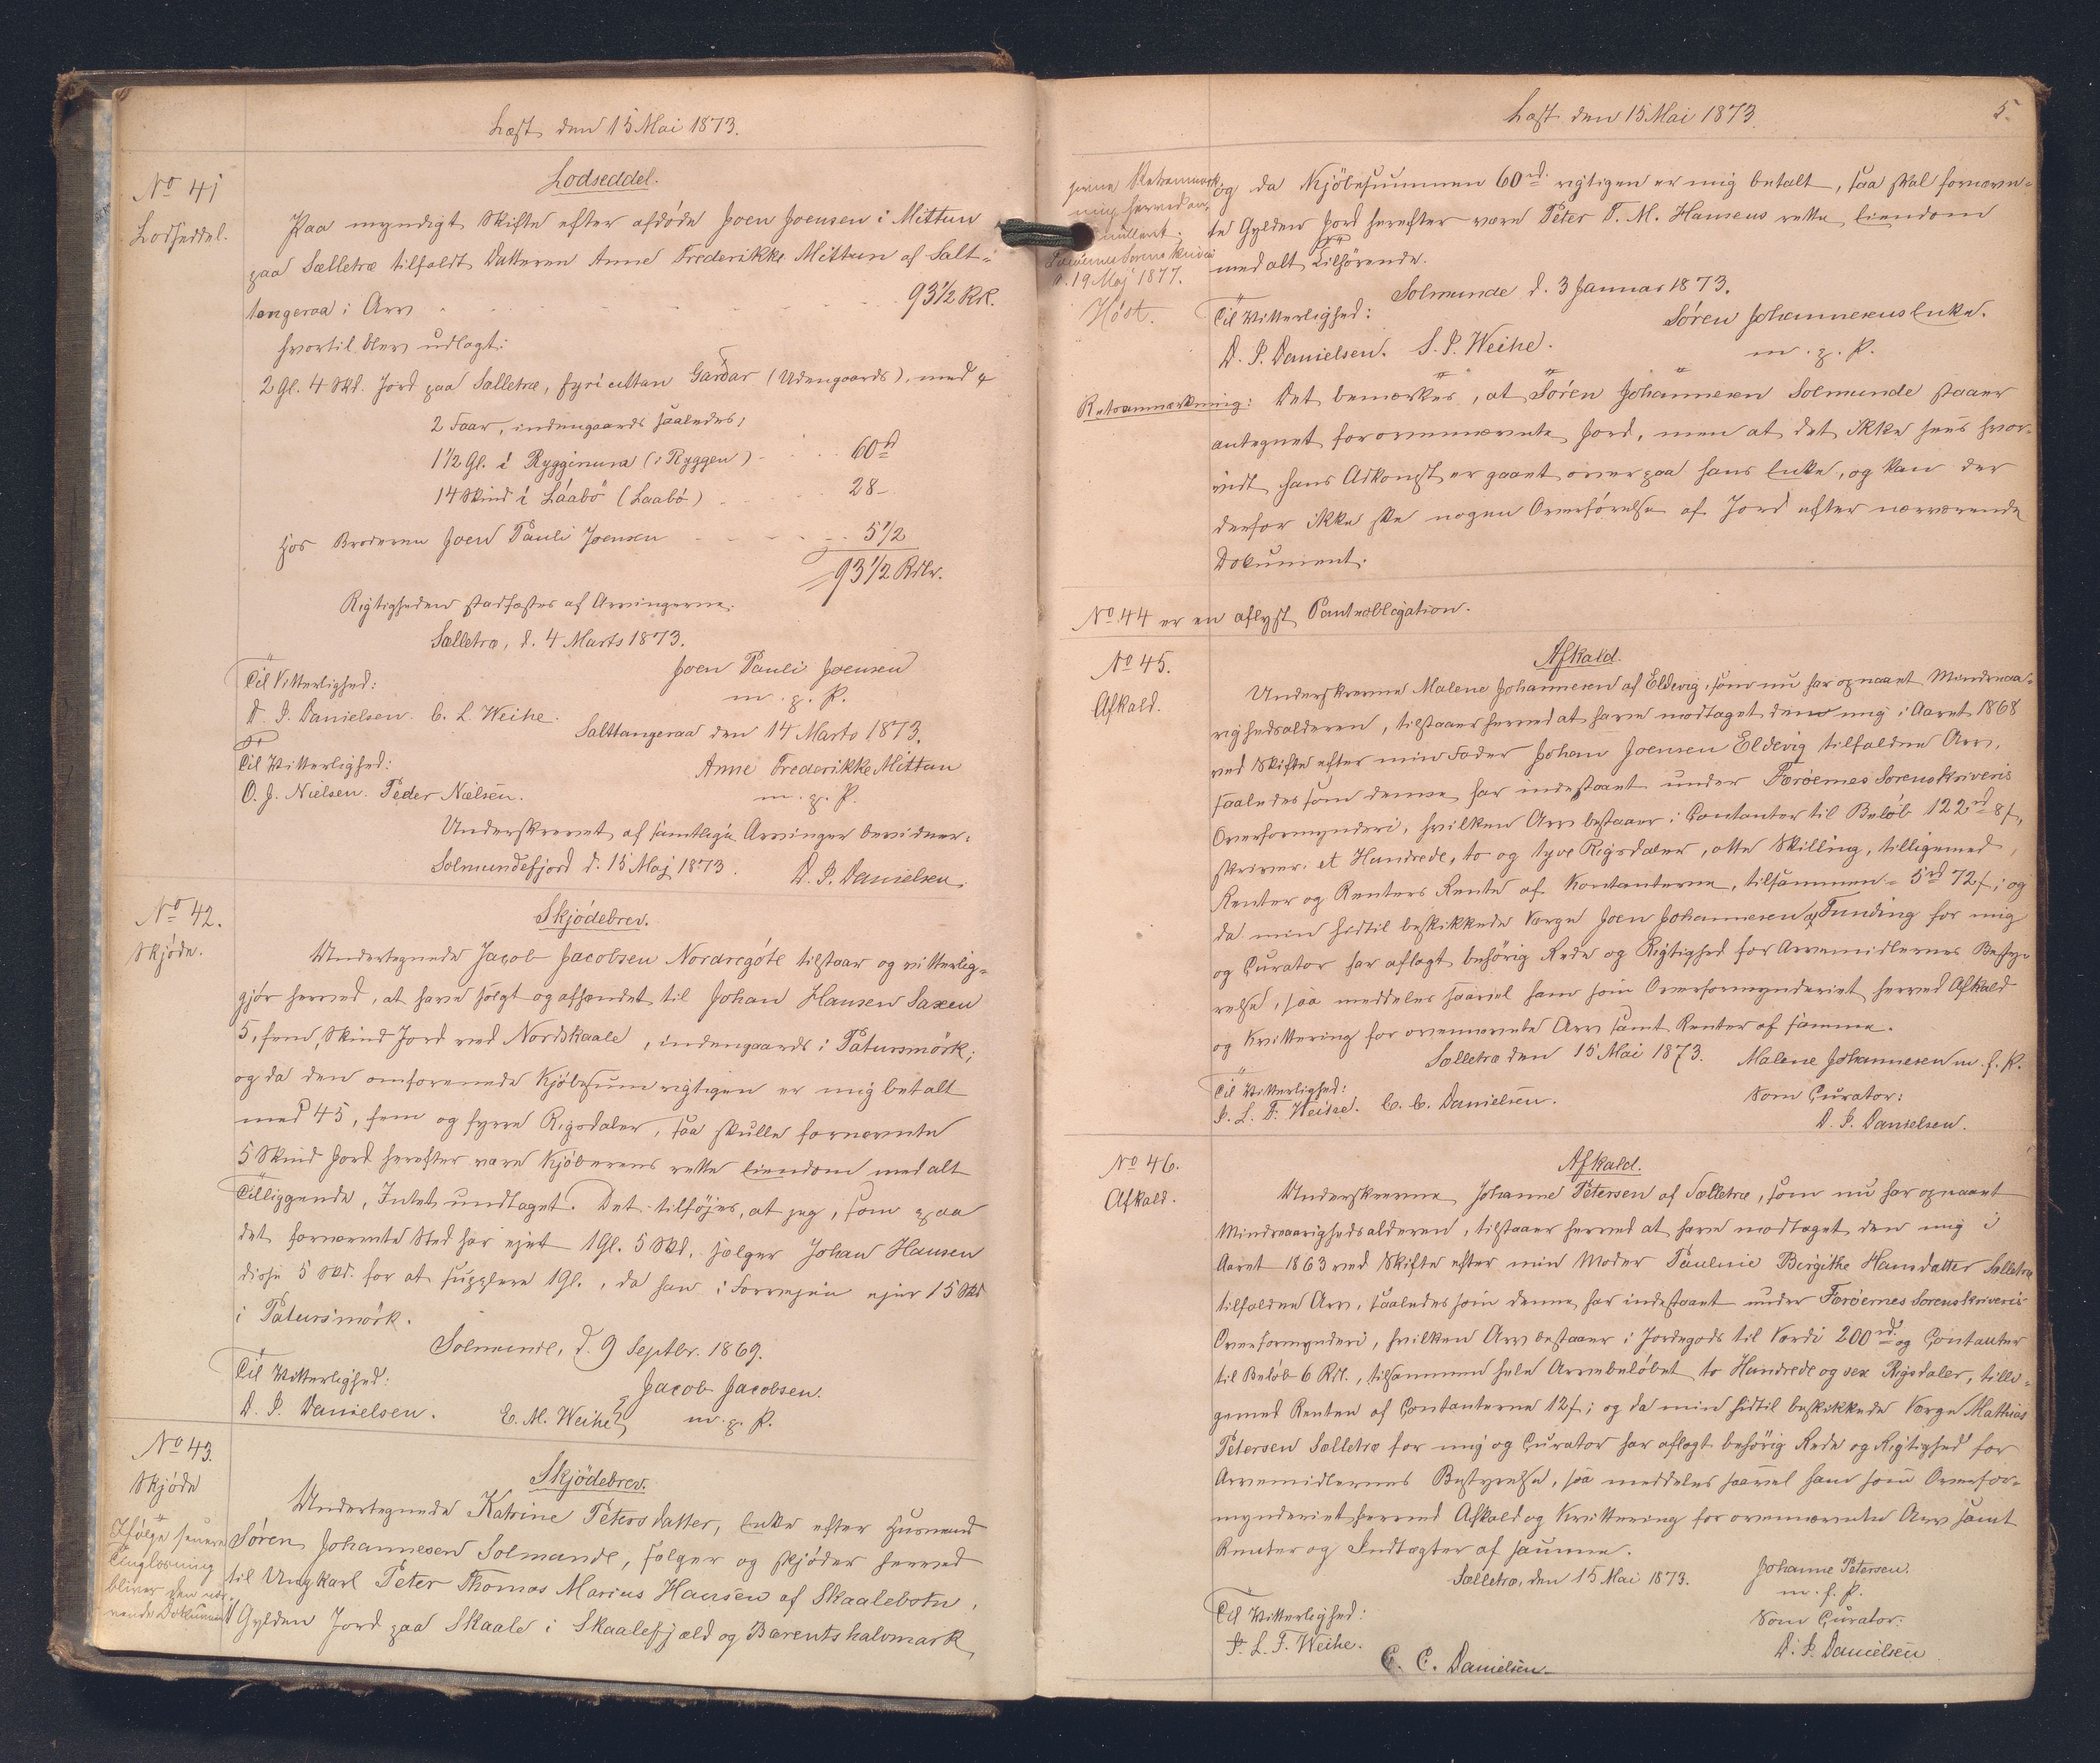 Læst den 15 Mai 1873.
No 41
Lodseddel.
Lodseddel.
Paa myndigt Skifte efter afdöde Joen Joensen i Mittun
paa Sælletræ tilfaldt Datteren Anne Frederikke Mittun af Salt-
tangeraa i Arv 93 1/2 Rdl.
hvortil blev udlagt:
2 Gl. 4 Skd. Jord paa Sælletræ, fyri uttan Gardar (Udengaards), med
2 Faar, indengaards saaledes,
1 1/2 Gl. i Rygginum (i Ryggen) 60 rd
14 Skind i Láabö (Laabö) 28 -
Hos Broderen Joen Pauli Joensen 5 1/2
93 1/2 Rdlr.
Rigtigheden stadfæstes af Arvingerne.
Sælletræ, d. 4 Marts 1873.
Joen Pauli Joensen
m. p. P.
Til Vitterlighed:
D. J. Danielsen. C. L. Weihe.
Salttangeraa den 14 Marts 1873.
Til Vitterlighed:
Anne Frederikke Mittun
m. p. P.
O. J. Nielsen. Peder Nielsen.
Underskrevet af samtlige Arvinger bevidner.
Solmundefjord d. 15 Maj 1873. D. J. Danielsen.
No 42.
Skjöde.
Skjödebrev.
Undertegnede Jacob Jacobsen Nordregöte tilstaar og vitterlig-
gjör herved, at have solgt og afhændet til Johan Hansen Saxen
5, fem, Skind Jord ved Nordskaale, indengaards i Patursmörk;
og da den omforenede Kjöbesum rigtigen er mig betalt
med 45, fem og fyrre Rigsdaler, saa skulle fornævnte
5 Skind Jord herefter være Kjöberens rette Eiendom med alt
Tilliggende, Intet undtaget. Det tilföjes, at jeg, som paa
det fornævnte Sted har ejet 1 Gl. 5 Skd. sælger Johan Hansen
disse 5 Skd. for at supplere 1 Gl., da han i Forvejen ejer 15 Skd
i Patursmörk.
Solmunde, d. 9 Septbr. 1869.
Til Vitterlighed:
Jacob Jacobsen.
m. p. P.
D. J. Danielsen. E. M. Weihe
No 43.
Skjöde
Skjödebrev.
Undertegnede Katrine Petersdatter, Enke efter Husmand
Sören Johannesen Solmunde, sælger og skjöder herved
til Ungkarl Peter Thomas Marius Hansen af Skaalebotn,
Gylden Jord paa Skaale i Skaalefjæld og Bærentshalvmark,
Ifölge senere
Tinglæsning
bliver den
Dokument
Læst den 15 Mai 1873.
5.
Retsanmærk-
ning herved an-
nulleret.
Færöernes Sorenskriveri
d. 19 Maj 1877.
Höst.
og da Kjöbesummen 60 rd. rigtigen er mig betalt, saa skal fornævn-
te Gylden Jord herefter være Peter T. M. Hansens rette Eiendom
med alt Tilhörende.
Solmunde d. 3 Januar 1873.
Til Vitterlighed:
Sören Johannesens Enke.
m. p. P.
D. J. Danielsen. S. P. Weihe.
Retsanmærkning: Det bemærkes, at Sören Johannesen Solmunde staaer
antegnet for ovennævnte Jord, men at det ikke sees hvor-
vidt hans Adkomst er gaaet over paa hans Enke, og kan der
derfor ikke ske nogen Overförelse af Jord efter nærværende
Dokument.
No 44 er en aflyst Panteobligation.
No 45.
Afkald.
Afkald.
Underskrevne Malene Johannesen af Eldevig, som nu har opnaaet Mindreaa-
righedsalderen, tilstaaer herved at have modtaget den mig i Aaret 1868
ved Skifte efter min Fader Johan Joensen Eldevig tilfaldne Arv,
saaledes som denne har indestaaet under Færöernes Sorenskriveris
Overformynderi, hvilken Arv bestaaer i Contanter til Belöb 122 rd 8 s,
skriver et Hundrede, to og tyve Rigsdaler, otte Skilling, tilligemed
Renter og Renters Rente af Kontanterne, tilsammen 5 rd 72 s; og
da min hidtil beskikkede Værge Joen Johannesen af Funding for mig
og Curator har aflagt behörig Rede og Rigtighed for Arvemidlernes Besty-
relse, saa meddeles saavel ham som Overformynderiet herved Afkald
og Kvittering for ovennævnte Arv samt Renter af samme.
Sælletræ den 15 Mai 1873. Malene Johannesen m. f. P.
Til Vitterlighed:
Som Curator:
J. L. F. Weihe. C. C. Danielsen.
D. J. Danielsen.
No 46.
Afkald.
Afkald.
Underskrevne Johanne Petersen af Sælletræ, som nu har opnaaet
Mindreaarighedsalderen, tilstaaer herved at have modtaget den mig i
Aaret 1863 ved Skifte efter min Moder Pauline Birgithe Hansdatter Sælletræ
tilfaldne Arv, saaledes som denne har indestaaet under Færöernes Sorenskriveris
Overformynderi, hvilken Arv bestaaer i Jordegods til Værdi 200 rd. og Contanter
til Belöb 6 Rdl., tilsammen hele Arvebelöbet to Hundrede og sex Rigsdaler, tilli-
gemed Renten af Contanterne 12 s; og da min hidtil beskikkede Værge Mathias
Petersen Sælletræ for mig og Curator har aflagt behörig Rede og Rigtighed for
Arvemidlernes Bestyrelse, saa meddeles saavel ham som Overfor-
mynderiet herved Afkald og Kvittering for ovennævnte Arv samt
Renter og Indtægter af samme.
Sælletræ, den 15 Mai 1873. Johanne Petersen.
m. f. P.
Til Vitterlighed:
Som Curator:
J. L. F. Weihe.
C. C. Danielsen.
D. J. Danielsen